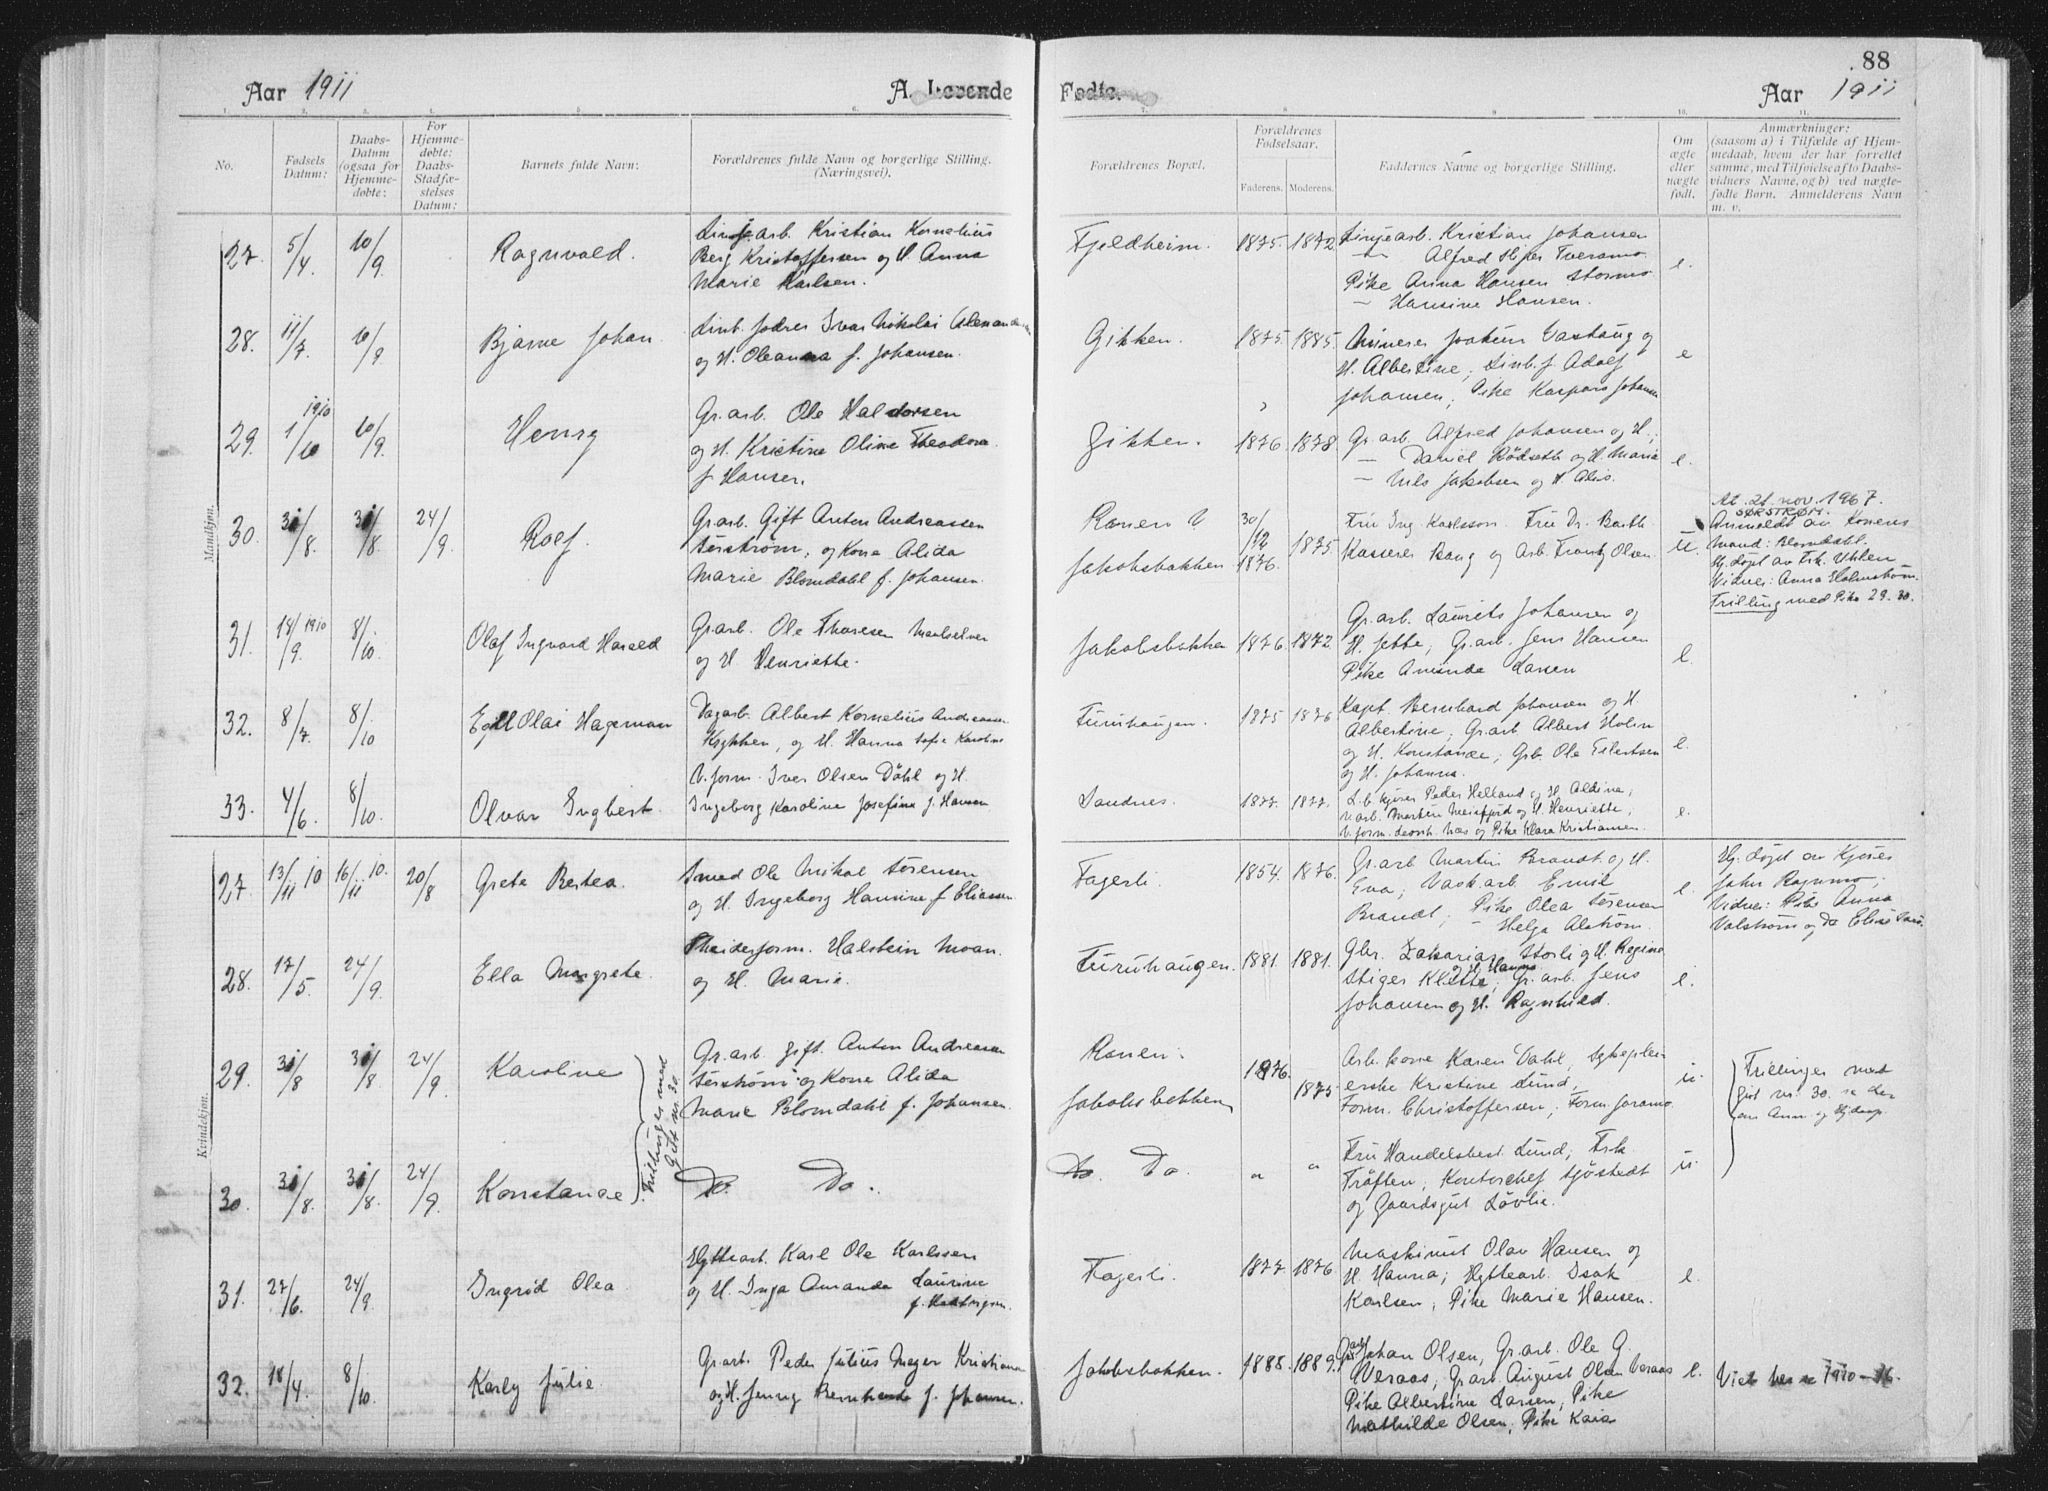 Aar 1911
A. Levende
Fødte.
88
Aar 1911
1. 2. 3. 4. 5. 6. 7. 8. 9. 10. 11.
No.
Fødsels
Datum:
Daabs-
Datum
(ogsaa for
Hjemme-
døbte:
For
Hjemme-
døbte:
Daabs-
Stadfæ-
stelses
Datum:
Barnets fulde Navn:
Forældrenes fulde Navn og borgerlige Stilling.
(Næringsvei).
Forældrenes Bopæl.
Forældrenes
Fødselsaar.
Faderens. Moderens.
Faddernes Navne og borgerlige Stilling.
Om
ægte
eller
uægte
født.
Anmærkninger:
(saasom a) i Tilfælde af Hjem-
medaab, hvem der har forrettet
samme, med Tilføielse af to Daabs-
vidners Navne, og b) ved uægte-
fødte Børn. Anmelderens Navn
m. v.
Mandkjøn.
27. 5/4. 10/9 Ragnvald.
Linjearb. Kristian Kornelius
Berg Kristoffersen og H. Anna
Marie Karlsen.
Fjeldheim. 1875. 1872
Linjearb. Kristian Johansen
Alfred Tveramo
Pike Anna Hansen Stormo
— Hansine Hansen.
e.
28. 11/7. 10/9. Bjarne Johan.
Linb. fodrer Ivar Nikolai
og H. Oleanna f. Johansen.
Gikken. 1875. 1885.
Minerer Joakim og
H. Albertine; Linb. f. Adolf
Johansen; Pike Johansen
e
29. 1/10 1910 10/9. Henry
Gr.arb. Ole Haldorsen
og H. Kristine Oline Theodora
f. Hansen.
Gikken. 1876 1878.
Gr. arb. Alfred Johansen og H.;
— Daniel Rödseth og H. Maria
— Nils Jakobsen og H.
e.
30. 31/8. 31/8 24/9 Rolf.
Gr.arb. Gift Anton Andreassen
Sørström, og Kone Alida
Marie Blomdahl f. Johansen.
Ronen
Jakobsbakken
30/12 1876. 1875.
Fru Ing. Karlsson. Fru Dr. Barth
Kasserer Bang og Arb. Frantz Olsen
u.
21. nov. 1967.
SØRSTRØM.
Anmeldt av Konens
mand: Blomdahl.
Hj. døpt av Frk. Uhlen
Vidner: Anna Holmstrøm.
Trilling med Pike 29. 30.
31. 18/9. 1910 8/10. Olaf Ingvard Harald
Gr.arb. Ole Thoresen
og H. Henriette.
Jakobsbakken 1876. 1872.
Gr.arb. Laurits Johansen og
H. Jette, Gr.arb. Jens Hansen
Pike Aminda Larsen
e.
32. 8/7. 8/10 Egil Olai Hageman
Dagarb. Albert Kornelius Andreassen
og H. Hanna Sofie Karoline
Furuhaugen. 1875 1876
Kapt. Bernhard Johansen og H
Albertine; Gr.arb Albert Holm
og H. Konstanse; Grb. Ole Eilertsen
og H. Johanna.
e.
33. 4/6. 8/10. Olvar Ingbert.
V. form. Iver Olsen Dahl og H.
Ingeborg Karoline Josefine f. Hansen
Sandnes. 1877. 1877.
Peder Helland og H. Aldine;
Martin Meisfjord og H. Henriette,
V. form. Næs og Pike Klara Kristiansen.
e.
Kvindekjøn.
27. 13/11 10 16/11 10. 20/8 Grete Bertea.
Smed Ole Mikal Sörensen
og H. Ingeborg Hansine f. Eliassen
Fagerli. 1854. 1876.
Gr.arb Martin Brandt og H.
Eva; Vask.arb. Emil
Brandt; Pike Olea Sörensen
— Helga Alström.
e.
Hj. døpt av Kjører
John Rognmo;
Vidner: Pike Anna
Valström og Do Eline
28. 17/5. 24/9. Ella Margrete.
Skeiderform. Halstein Moan.
og H. Marie.
Furuhaugen. 1881. 1881.
Gbr. Zakarias Storli og H. Regine
Stiger Klette og H. Hanna, Gr.arb. Jens
Johansen og H. Ragnhild.
e.
29. 31/8 31/8 24/9. Karoline
Gr.arb. gift. Anton Andreassen
Sørström og Kone Alida
Marie Blomdahl f. Johansen.
Ronen.
Jakobsbakken
1876. 1875
Arb. kone Karen Dahl, Sykeplei-
erske Kristine Lund,
Form. Christoffersen; Form. Joramo.
u
Trillinger med
Gut nr. 30. se der
om Anm. og Hjdaap.
Trillinger med
Gut nr 30
30. 31/8. 31/8. 24/9. Konstanse
Do. Do.
Do. Do. " "
Fru Handelsbest. Lund; Frk
Tröften, Kontorchef Sjöstedt
og Gaardsgut Lövlie.
u
31. 27/6. 24/9. Ingrid Olea
Hyttearb. Karl Ole Karlssen
og H. Inga Amanda Laurine
f.
Fagerli. 1877. 1876
Maskinist Olav Hansen og
H. Hanna; Hyttearb. Isak
Karlsen, Pike Marie Hansen.
e.
32. 18/4. 8/10. Karly Julie.
Gr.arb. Peder Julius Meyer
og H. Jenny Bernharda f. Johansen.
Jakobsbakken. 1888. 1889.
Johan Olsen, Gr.arb. Ole G.
Veraas, Gr.arb. August Olsen Veraas
Pike Albertine Larsen, Pike
Mathilde Olsen, Pike Kaia
e.
Viet 1910 — 16.